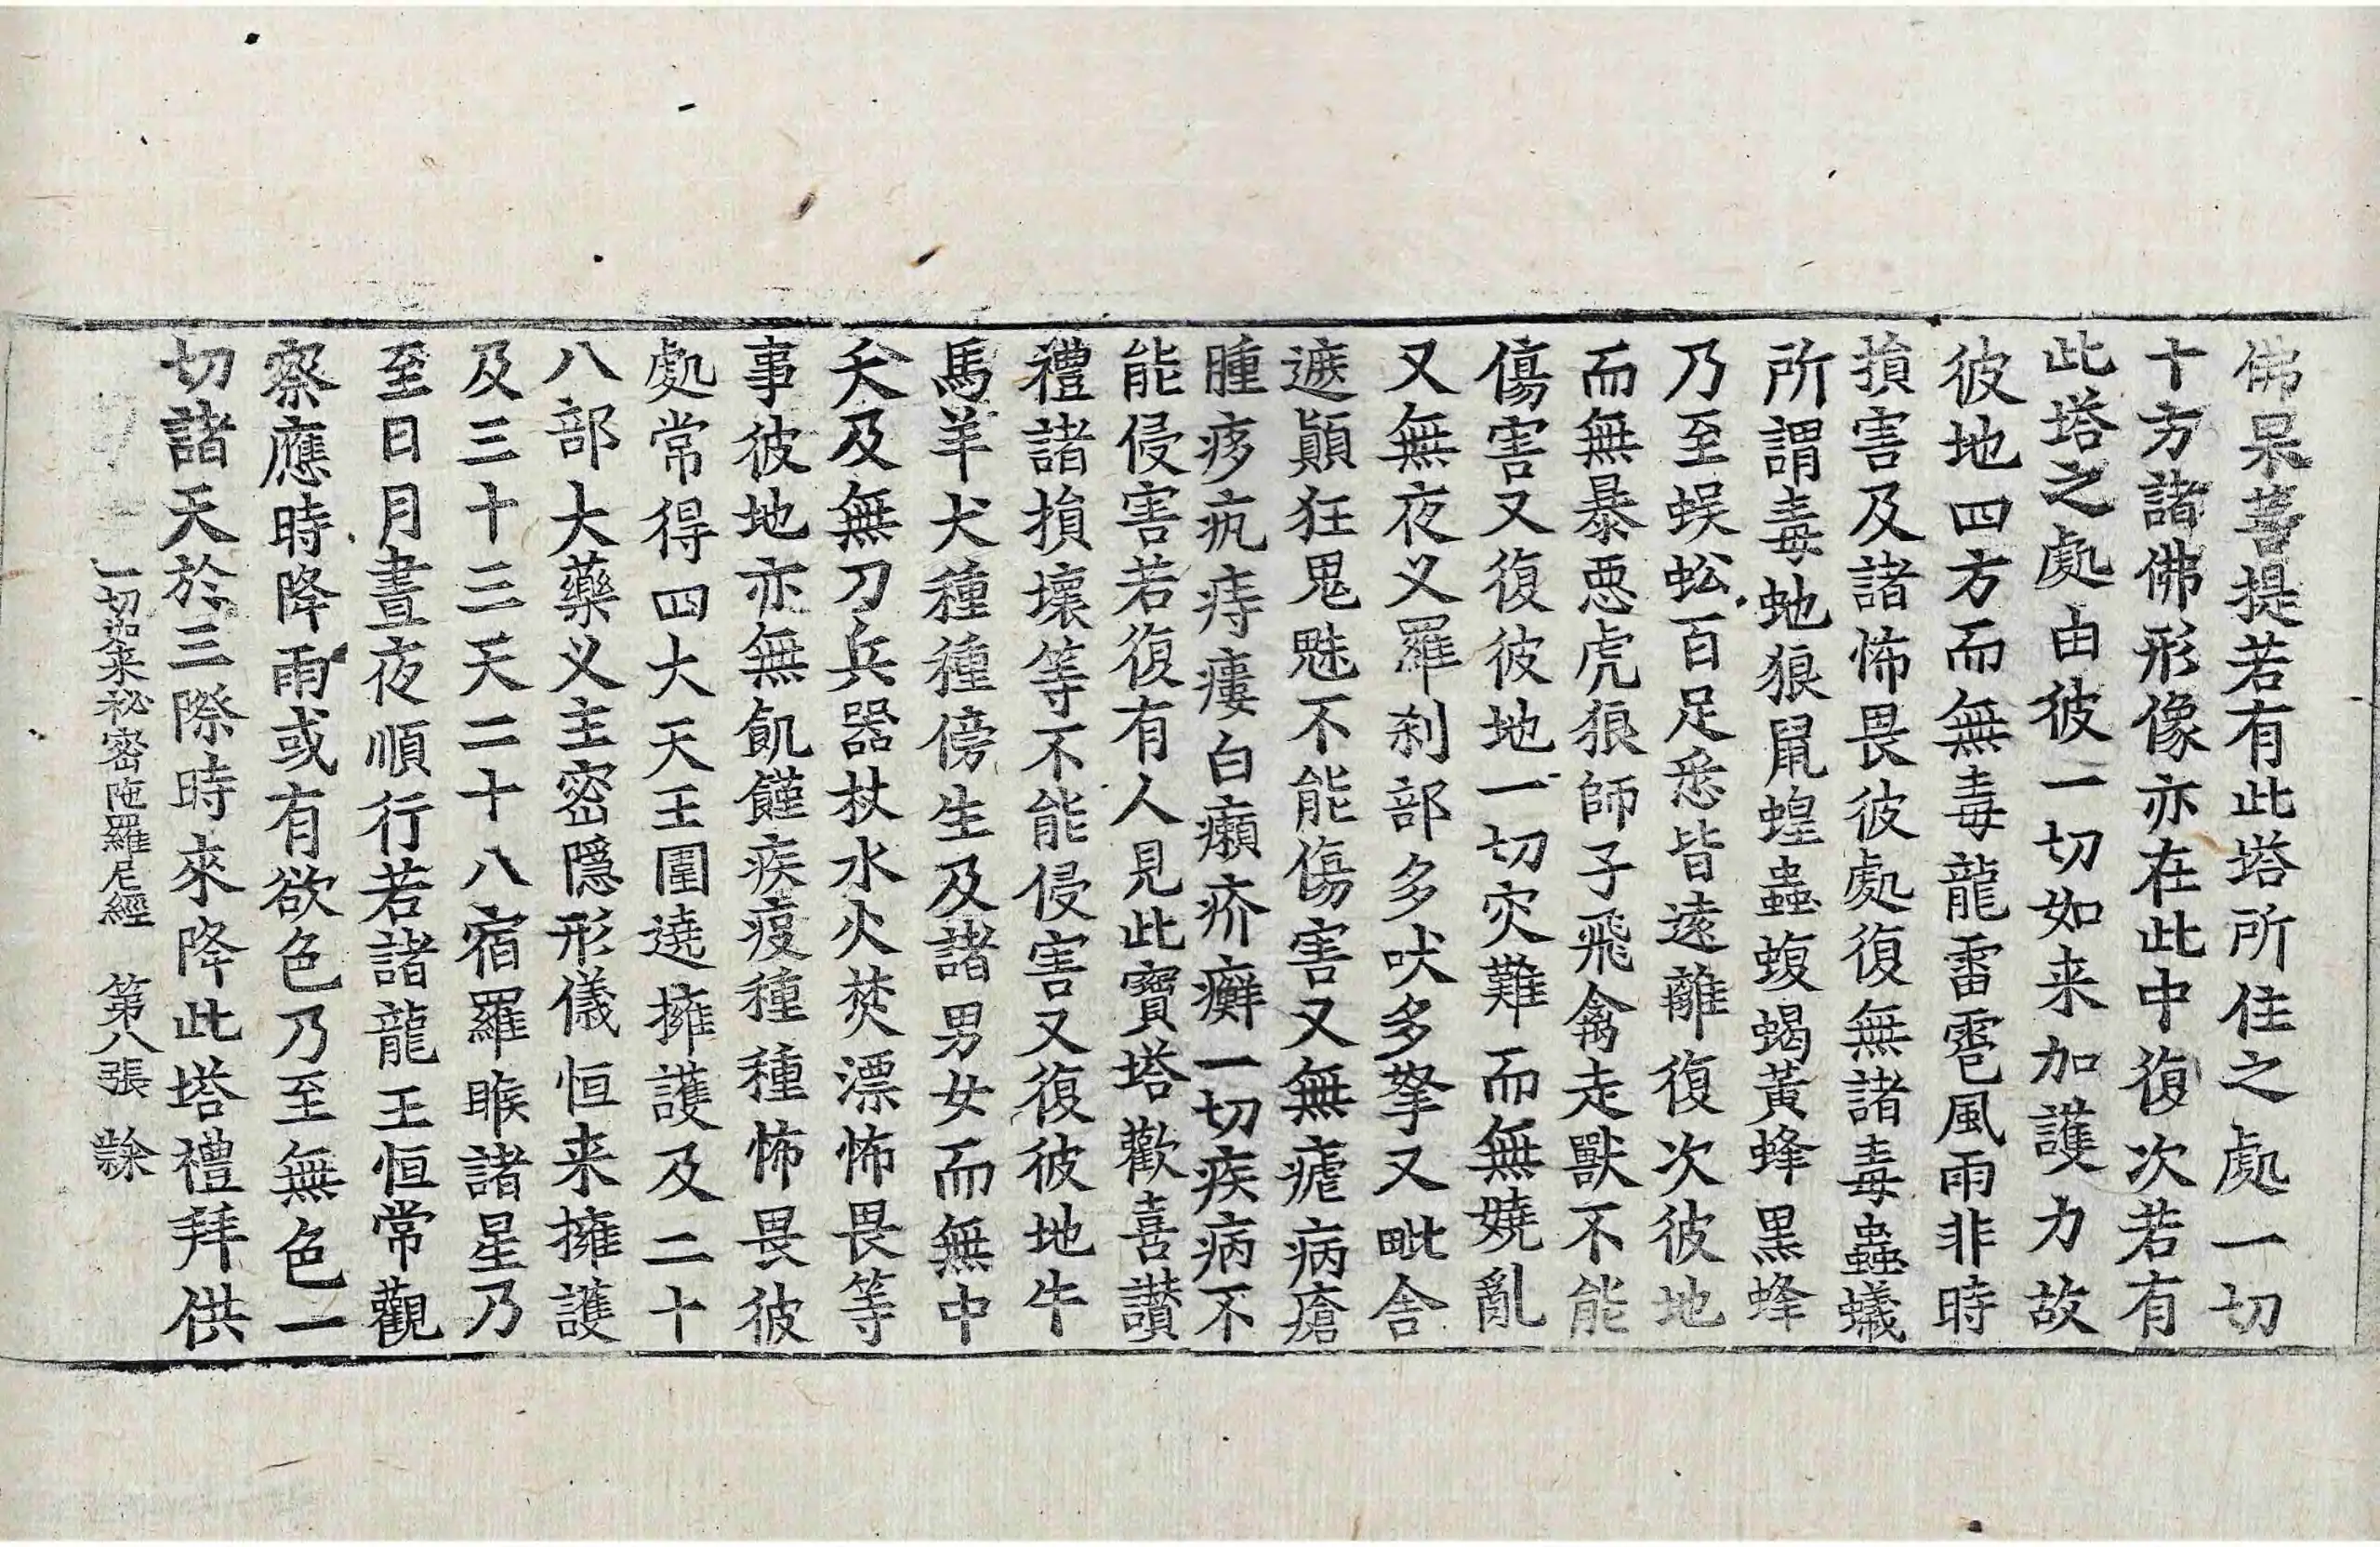 佛果菩提若有此塔所住之處一切
十方諸佛形像亦在此中復次若有
此塔之處由彼一切如来加護力故
彼地四方而無毒龍雷雹風雨非時
損害及諸怖畏彼處復無諸毒蟲蟻
所謂毒虵狼鼠蝗蟲蝮蝎黃蜂黑蜂
乃至蜈蚣百足悉皆遠離復次彼地
而無暴惡虎狼師子飛禽走獸不能
傷害又復彼地一切灾難而無嬈亂
又無夜叉羅刹部多吠多拏又毗舍
遮顚狂鬼魅不能傷害又無瘧病瘡
腫痑疻痔瘻白癩疥癬一切疾病不
能侵害若復有人見此寶塔歡喜讃
禮諸損壞等不能侵害又復彼地牛
馬羊犬種種傍生及諸男女而無中
夭及無刀兵器杖水火焚漂怖畏等
事彼地亦無飢饉疾疫種種怖畏彼
處常得四大天王圍遶擁護及二十
八部大藥叉主密隱形儀恒来擁護
及三十三天二十八宿羅睺諸星乃
至日月晝夜順行若諸龍王恒常觀
察應時降雨或有欲色乃至無色一
切諸天於三際時來降此塔禮拜供
一切如来祕密陁羅尼經 第八張